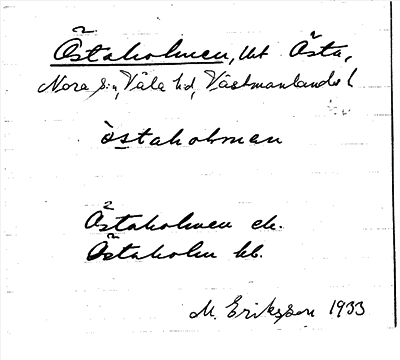 Östaholmen, ut Östa,
Nora sn, Våla hd, Västmanlands l
östaholmen
Östaholmen ek.
Östaholm kb.
M. Eriksson 1933